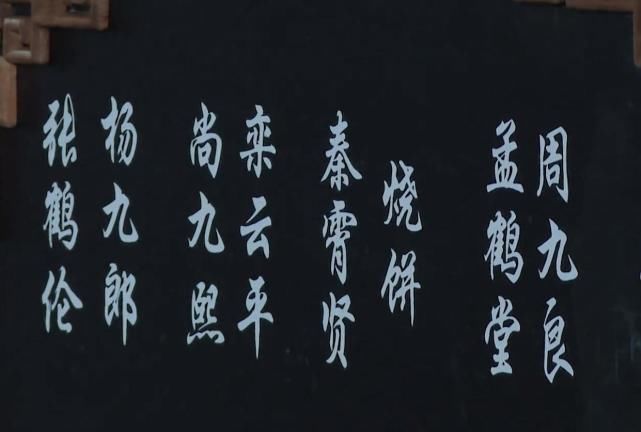 周九良
孟鹤堂
烧饼
秦霄贤
栾云平
尚九熙
杨九郎
张鹤伦